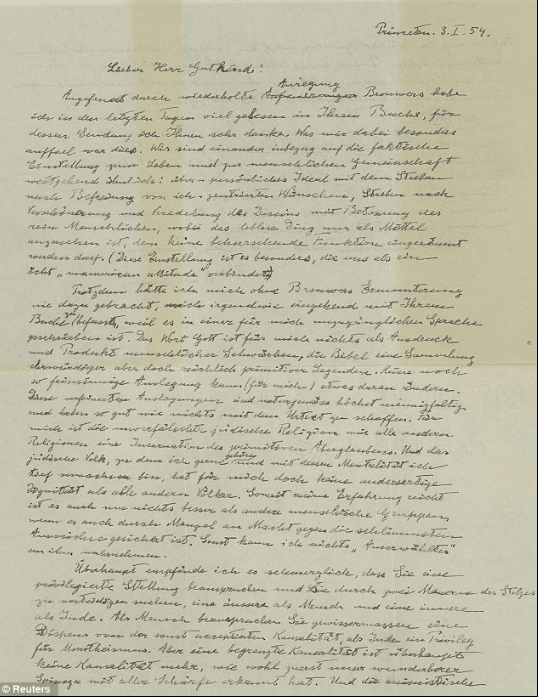 Princeton. 3. I. 54.
Lieber Herr Gutkind!
Anregung
Angefeuert durch wiederholte Brouwers habe
ich in den letzten Tagen viel gelesen in Ihrem Buche, für
dessen Sendung ich Ihnen sehr danke. Was mir dabei besonders
auffiel war dies. Wir sind einander inbezug auf die faktische
Einstellung zum Leben und zur menschlichen Gemeinschaft
weitgehend ähnlich: über-persönliches Ideal mit dem Streben
nach Befreiung von ich-zentrierten Wünschen, Streben nach
Verschönerung und Veredelung des Daseins mit Betonung des
rein Menschlichen, wobei das leblose Ding nur als Mittel
anzusehen ist, dem keine beherrschende Funktion eingeräumt
werden darf. (Diese Einstellung ist es besonders, die uns als ein
echt „unamerican attitude“ verbindet)
Trotzdem hätte ich mich ohne Brouwers Ermunterung
nie dazu gebracht, mich irgendwie eingehend mit Ihrem
Buche zu befassen, weil es in einer für mich unzugänglichen Sprache
geschrieben ist. Das Wort Gott ist für mich nichts als Ausdruck
und Produkt menschlicher Schwächen, die Bibel eine Sammlung
ehrwürdiger aber doch reichlich primitiver Legenden. Keine noch
so feinsinnige Auslegung kann (für mich) etwas daran ändern.
Diese verfeinerten Auslegungen sind naturgemäss höchst mannigfaltig
und haben so gut wie nichts mit dem Urtext zu schaffen. Für
mich ist die unverfälschte jüdische Religion wie alle anderen
Religionen eine Incarnation des primitiven Aberglaubens. Und das
jüdische Volk, zu dem ich gerne gehöre und mit dessen Mentalität ich
tief verwachsen bin, hat für mich doch keine andersartige
Dignität als alle anderen Völker. Soweit meine Erfahrung reicht
ist es auch um nichts besser als andere menschliche Gruppen
wenn es auch durch Mangel an Macht gegen die schlimmsten
Auswüchse gesichert ist. Sonst kann ich nichts „Auserwähltes“
an ihm wahrnehmen.
Überhaupt empfinde ich es schmerzlich, dass Sie eine
privilegierte Stellung beanspruchen und sie durch zwei Mauern des Stolzes
zu verteidigen suchen, eine äussere als Mensch und eine innere
als Jude. Als Mensch beanspruchen Sie gewissermassen eine
Dispens von der sonst acceptierten Kausalität, als Jude ein Privileg
für Monotheismus. Aber eine begrenzte Kausalität ist überhaupt
keine Kausalität mehr, wie wohl zuerst unser wunderbarer
Spinoza mit aller Schärfe erkannt hat. Und die animistische
© Reuters